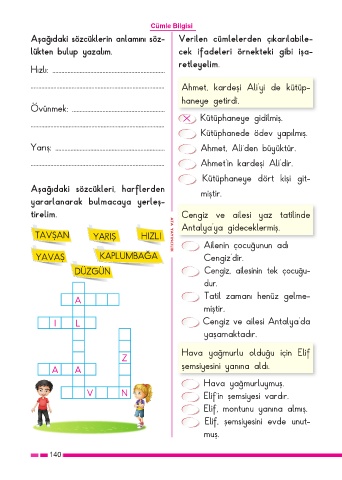 Cümle Bilgisi
Aşağıdaki sözcüklerin anlamını söz-
lükten bulup yazalım.
Hızlı:
Övünmek:
Yarış:
Aşağıdaki sözcükleri, harflerden
yararlanarak bulmacaya yerleş-
tirelim.
TAVŞAN YARIŞ HIZLI
YAVAŞ KAPLUMBAĞA
DÜZGÜN
A
I L
Z
A A
V N
ATA YAYINCILIK
Verilen cümlelerden çıkarılabile-
cek ifadeleri örnekteki gibi işa-
retleyelim.
Ahmet, kardeşi Ali'yi de kütüp-
haneye getirdi.
X Kütüphaneye gidilmiş.
Kütüphanede ödev yapılmış.
Ahmet, Ali'den büyüktür.
Ahmet'in kardeşi Ali'dir.
Kütüphaneye dört kişi git-
miştir.
Cengiz ve ailesi yaz tatilinde
Antalya'ya gideceklermiş.
Ailenin çocuğunun adı
Cengiz'dir.
Cengiz, ailesinin tek çocuğu-
dur.
Tatil zamanı henüz gelme-
miştir.
Cengiz ve ailesi Antalya'da
yaşamaktadır.
Hava yağmurlu olduğu için Elif
şemsiyesini yanına aldı.
Hava yağmurluymuş.
Elif'in şemsiyesi vardır.
Elif, montunu yanına almış.
Elif, şemsiyesini evde unut-
muş.
140